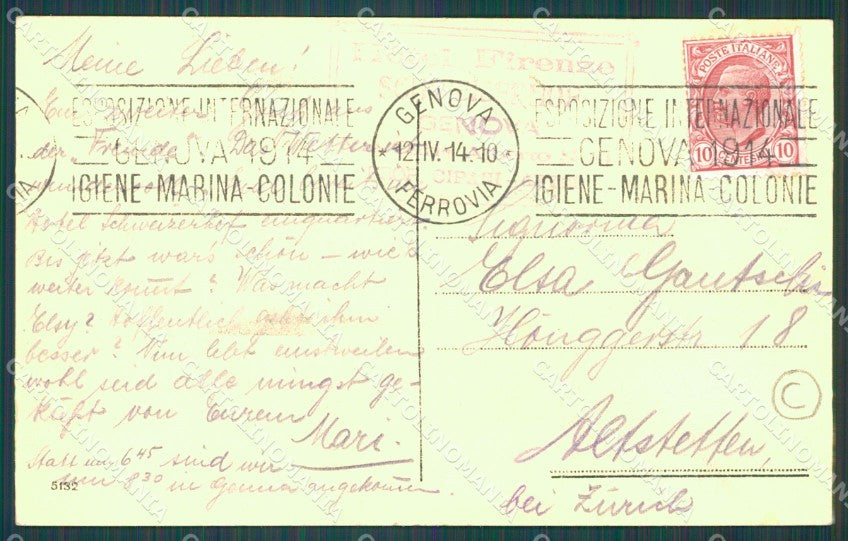 Meine Lieben!
Ein
der Fremde. Das Wetter
Hotel Schweizerhof einquartiert.
Bis jetzt wars schön – wie's
weiter kommt? Was macht
Elsy? Hoffentlich geht's ihm
besser? Nun lebt einstweilen
wohl seid alle innigst ge-
küsst von Eurem
Mari.
Statt um 6 45 sind wir
um 8 30 in Genua angekommen.
5132
Hotel Firenze
GENOVA
ESPOSIZIONE INTERNAZIONALE
GENOVA 1914
IGIENE-MARINA-COLONIE
GENOVA
12.IV.14.10
FERROVIA
ESPOSIZIONE INTERNAZIONALE
GENOVA 1914
IGIENE-MARINA-COLONIE
POSTE ITALIANE
10 10
Signorina
Elsa Gautschi
Hönggerstr 18
Altstetten,
bei Zürich
C
CARTOLINOMANIA